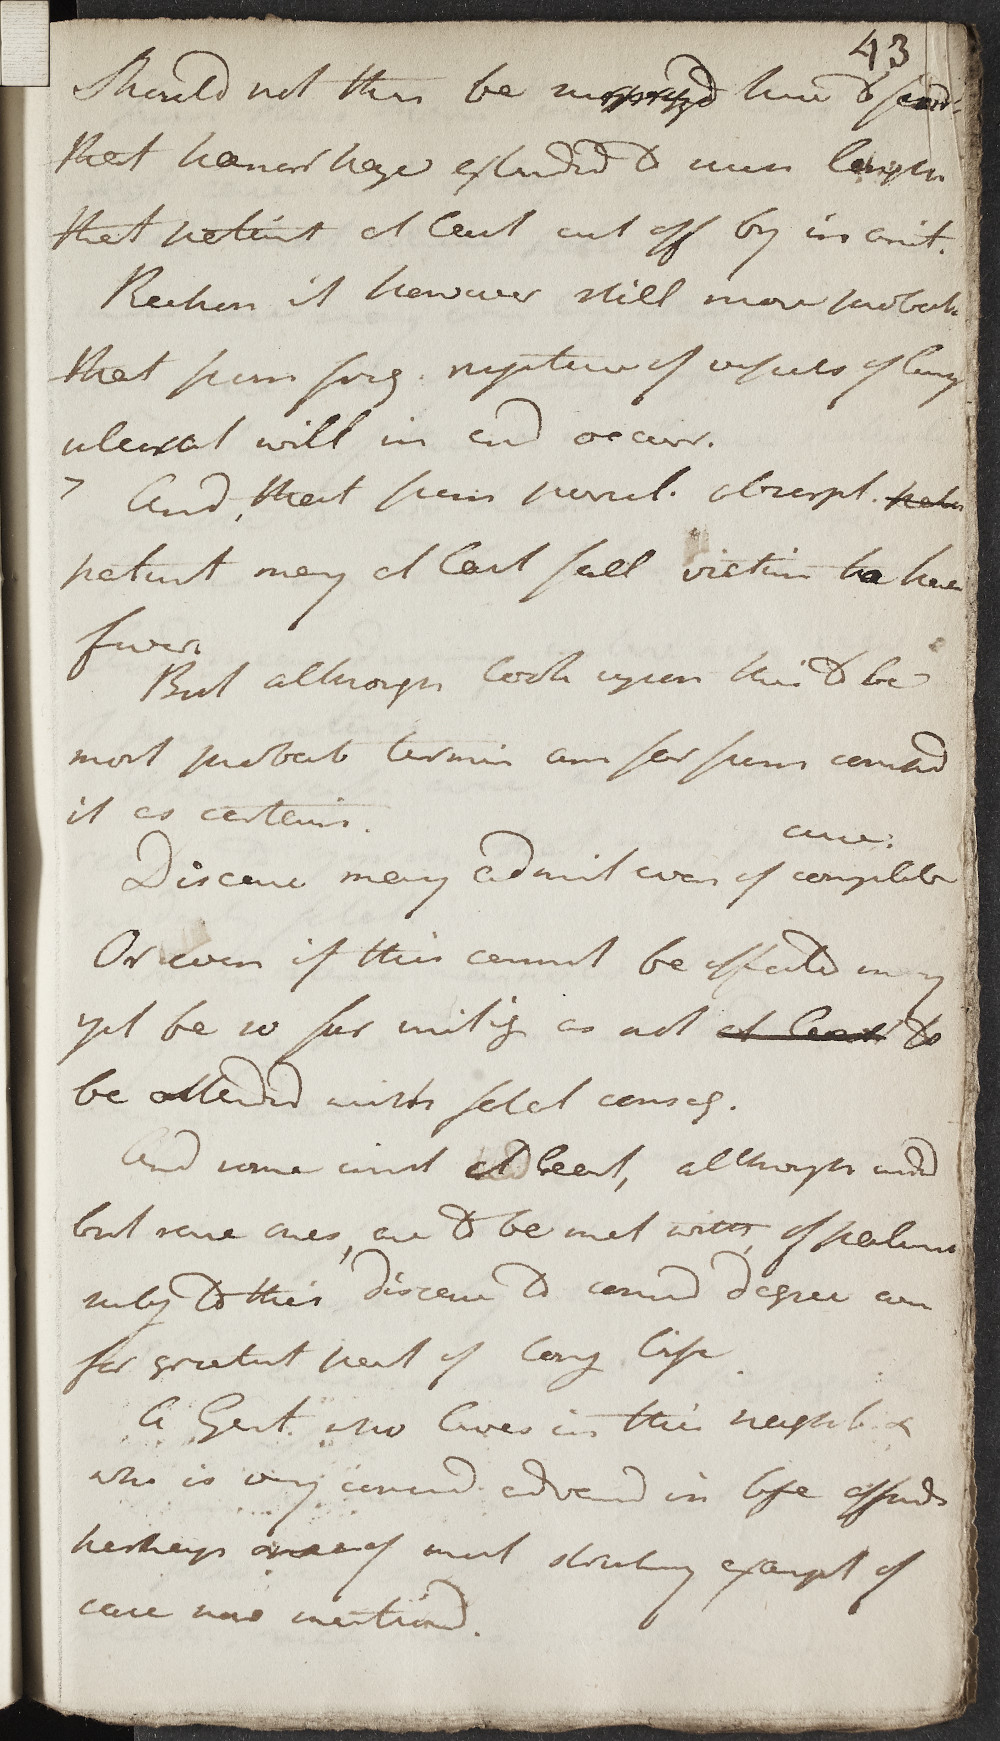 43
Should not then be surprisd have to find
that hemorrhage extended to such length
that patient at least cut off by in on it.
Reckon it however still more probab
that from freq. rupture of vessels of lung
ulcerat will in end occur.
7 And, that from purul. absorpt. patin
patient may at last fall victim to hect
fever.
But although look upon this to be
most probab termin am far from consid
it as certain.
cure:
Disease may admit even of complete
Or even if this cannot be effected may
yet be so far mitig as not at least to
be attended with fatal conseq.
And some inst at least, although indd
but rare ones, are to be met with, of patients
subj to this disease to consid degree even
for greatest part of long life.
A Gent. who lives in this neighb &
who is very consid. advancd in life affords
perhaps one of most striking exampl of
case now mentiond.